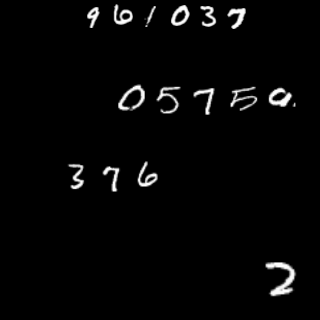 961037
05750
376
2